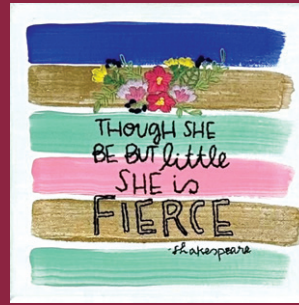 THOUGH SHE
BE BUT little
SHE is
FIERCE
-shakespeare